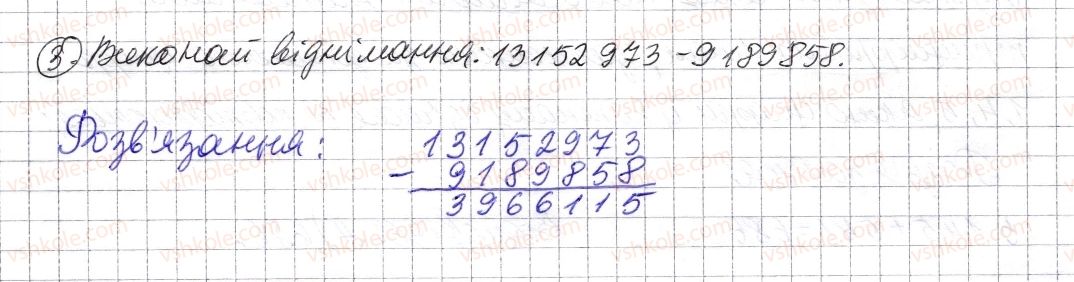 3. Виконай віднімання: 13152973-9189858.
Розв'язання:
13152973
- 9189858
3966115